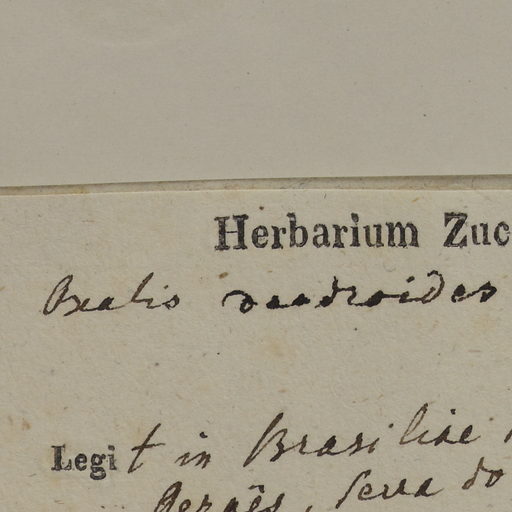 Herbarium Zuc
Oxalis dendroides
Legit in Brasiliae
Geraës, Serra do